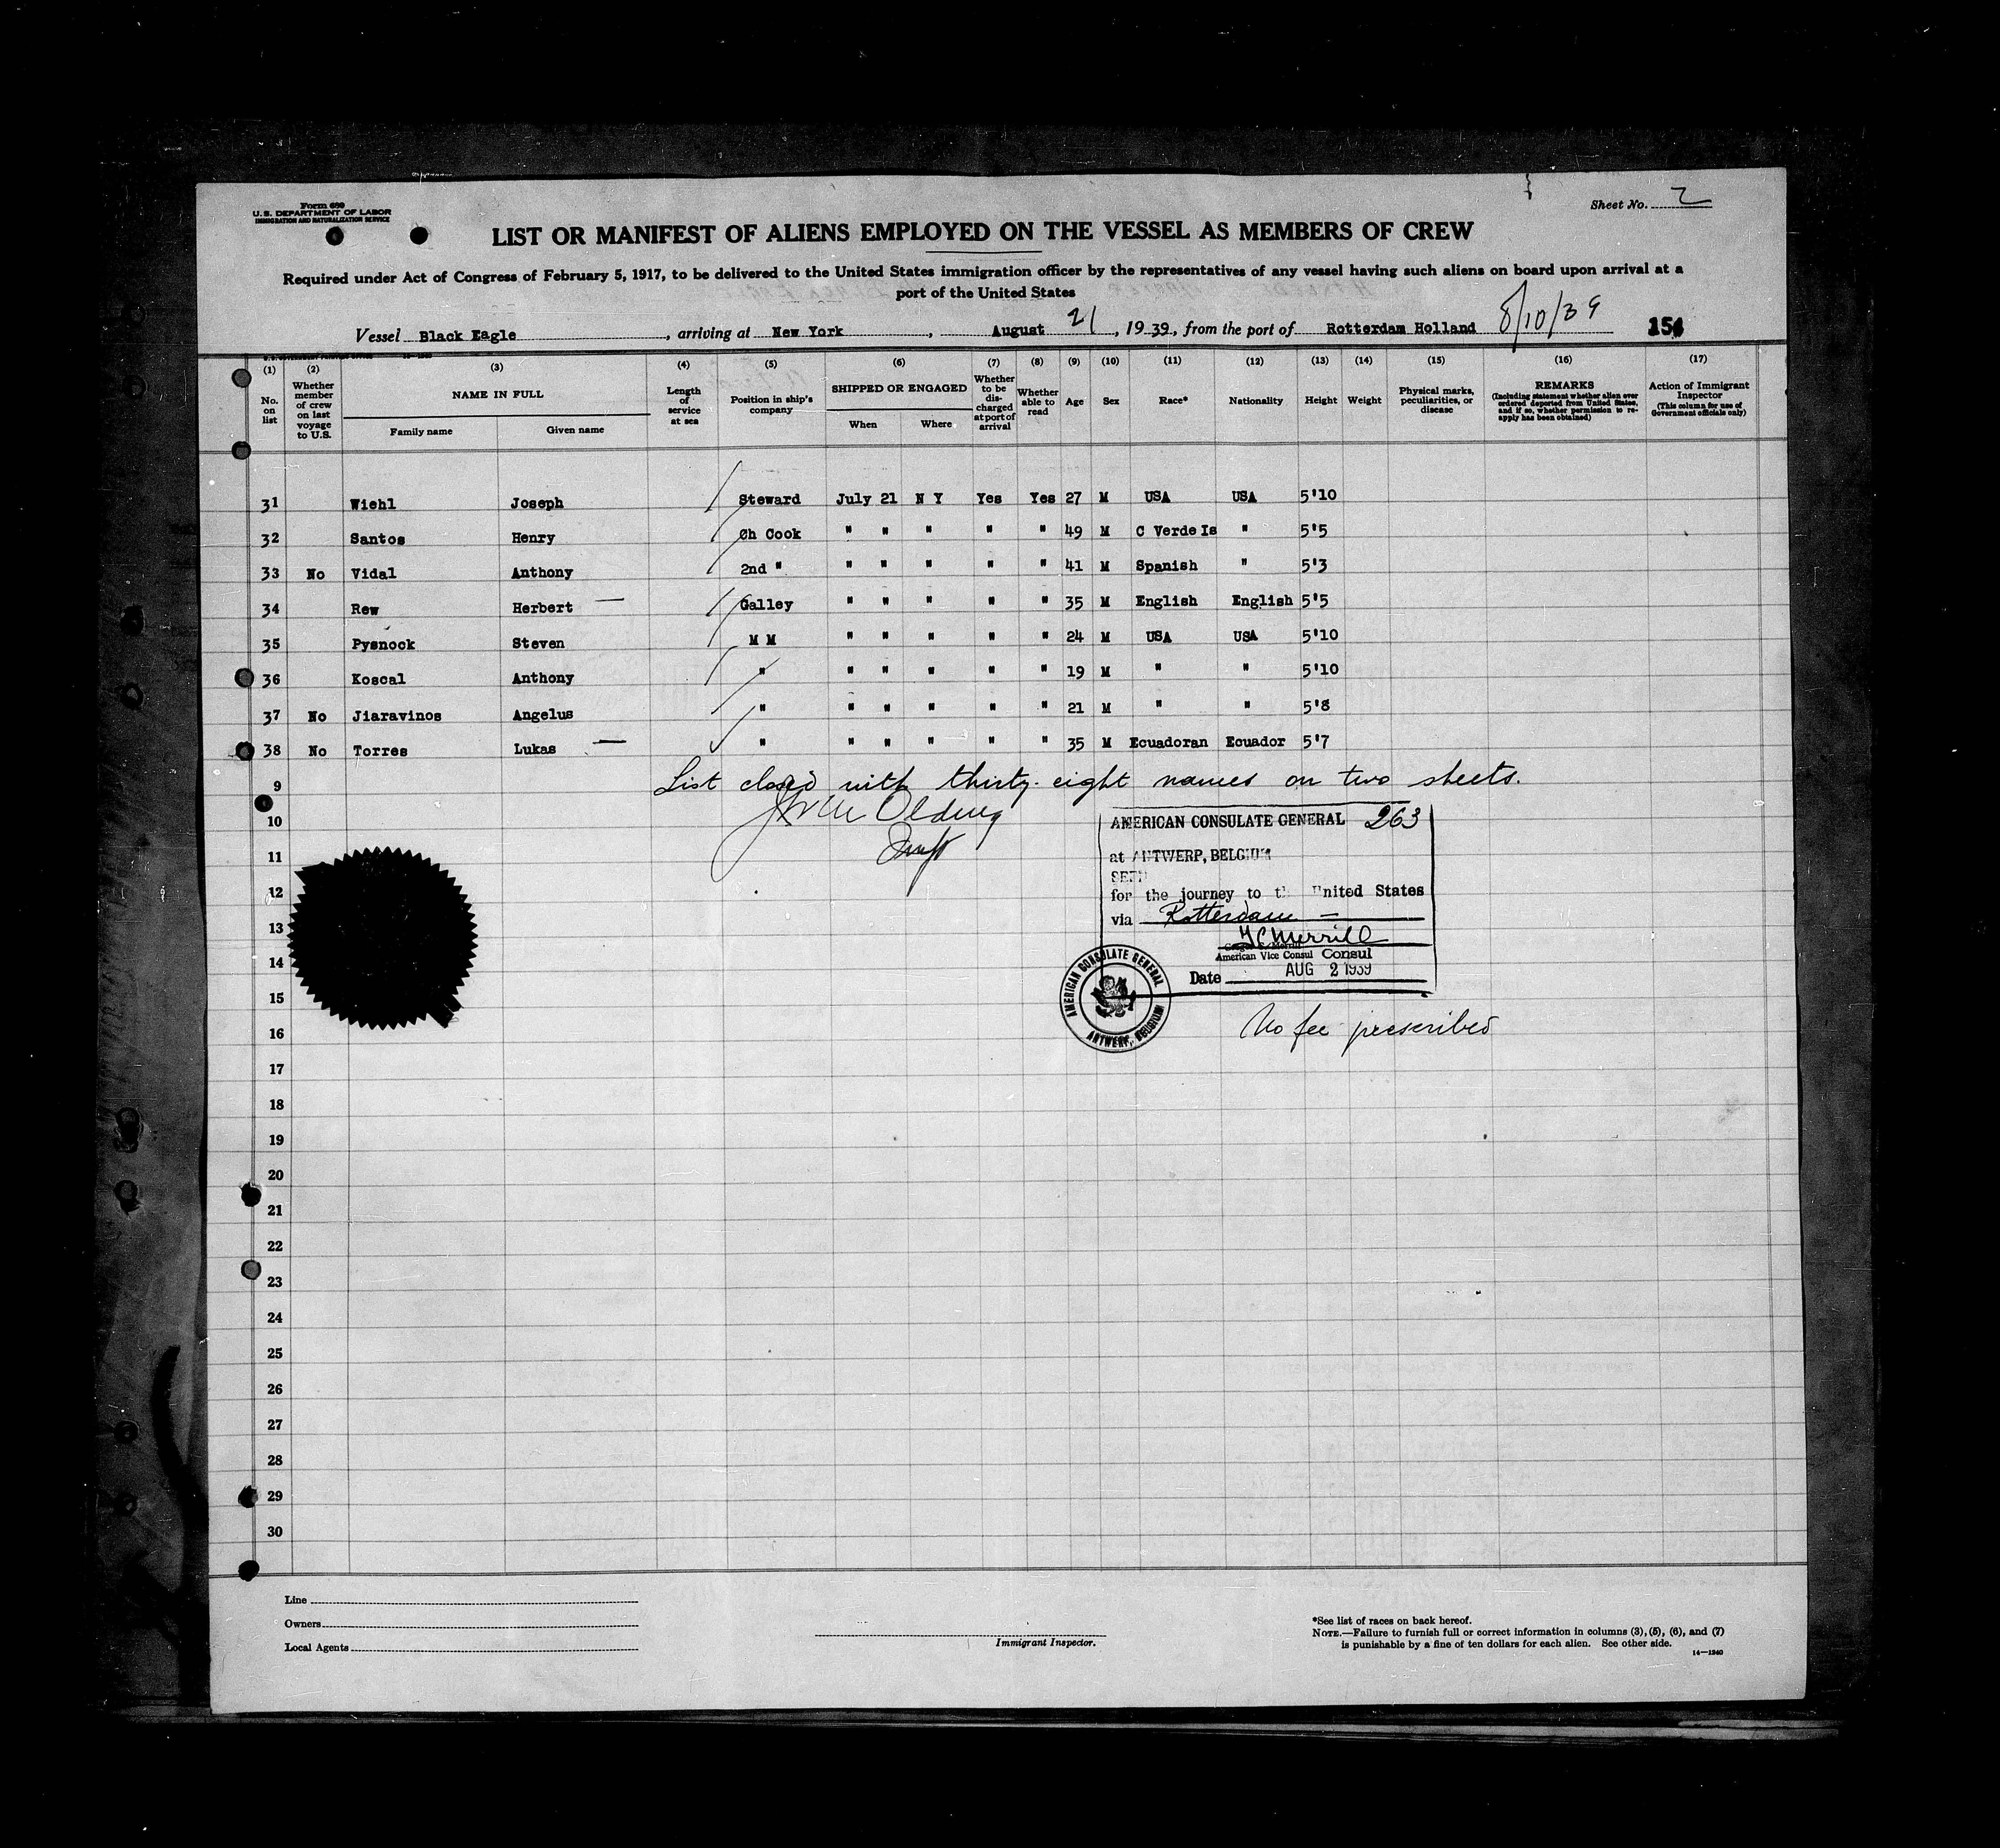 Form 689
U. S. DEPARTMENT OF LABOR
IMMIGRATION AND NATURALIZATION SERVICE
Sheet No. 2
LIST OR MANIFEST OF ALIENS EMPLOYED ON THE VESSEL AS MEMBERS OF CREW
Required under Act of Congress of February 5, 1917, to be delivered to the United States immigration officer by the representatives of any vessel having such aliens on board upon arrival at a
port of the United States
Vessel Black Eagle, arriving at New York, August 21, 1939, from the port of Rotterdam Holland 8/10/39 154
(1) (2) (3) (4) (5) (6) (7) (8) (9) (10) (11) (12) (13) (14) (15) (16) (17)
No. on list
Whether member of crew on last voyage to U.S.
NAME IN FULL
Family name Given name
Length of service at sea
Position in ship's company
SHIPPED OR ENGAGED
When Where
Whether to be discharged at port of arrival
Whether able to read
Age Sex Race* Nationality Height Weight
Physical marks, peculiarities, or disease
REMARKS
(Including statement whether alien ever ordered deported from United States, and if so, whether permission to reapply has been obtained)
Action of Immigrant Inspector
(This column for use of Government officials only)
31 Wiehl Joseph Steward July 21 N Y Yes Yes 27 M USA USA 5'10
32 Santos Henry Ch Cook " " " " " 49 M C Verde Is " 5'5
33 No Vidal Anthony 2nd " " " " " " 41 M Spanish " 5'3
34 Rew Herbert — Galley " " " " " 35 M English English 5'5
35 Pysnock Steven M M " " " " " 24 M USA USA 5'10
36 Koscal Anthony " " " " " " 19 M " " 5'10
37 No Jiaravinos Angelus " " " " " " 21 M " " 5'8
38 No Torres Lukas — " " " " " " 35 M Ecuadoran Ecuador 5'7
9 List closed with thirty-eight names on two sheets.
10
AMERICAN CONSULATE GENERAL 263
11
at ANTWERP, BELGIUM
12
for the journey to the United States
13
via Rotterdam —
14
American Vice Consul Consul
Date AUG 2 1939
AMERICAN CONSULATE GENERAL
ANTWERP, BELGIUM
15
16
No fee prescribed
17
18
19
20
21
22
23
24
25
26
27
28
29
30
Line
Owners
Local Agents
Immigrant Inspector.
*See list of races on back hereof.
NOTE.—Failure to furnish full or correct information in columns (3), (5), (6), and (7)
is punishable by a fine of ten dollars for each alien. See other side.
14—1240